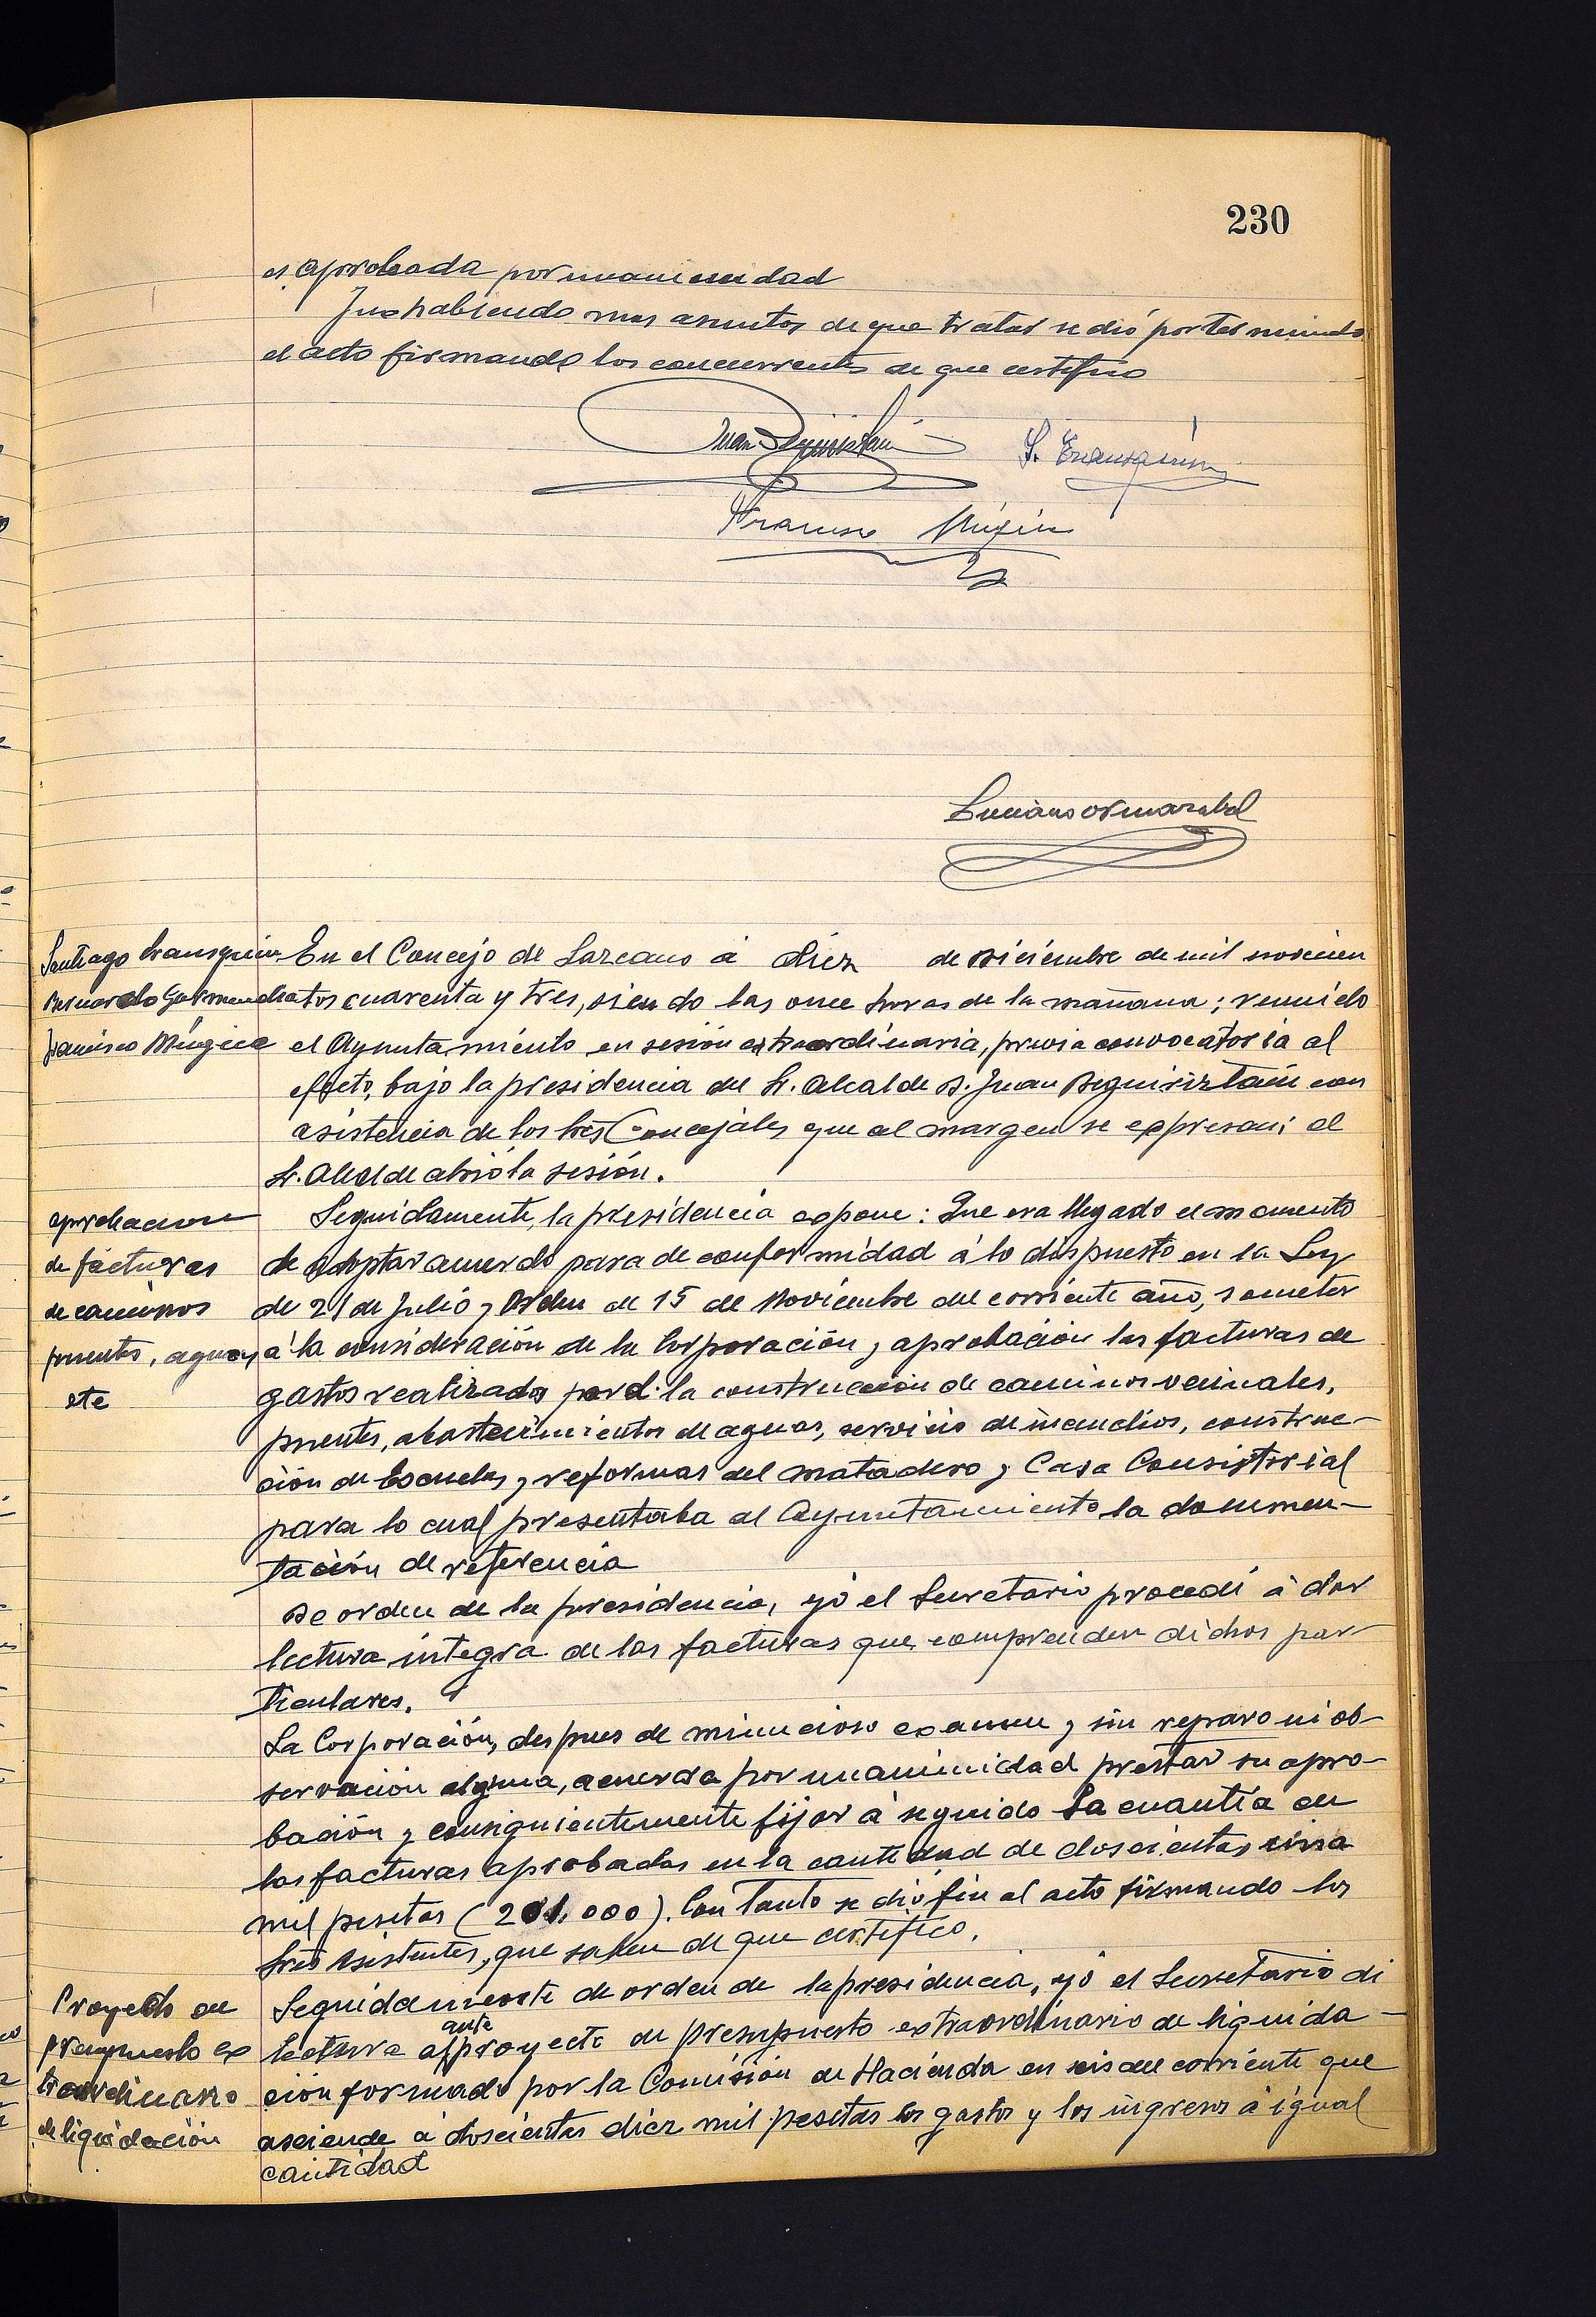 230
es aprobada por unanimidad
Y no habiendo mas asuntos de que tratar se dió por terminado
el acto firmando los concurrentes de que certifico
Juan Beguiristain
S. Erausquin
Francisco Múgica
Luciano Ormazabal
Santiago Erausquin
Bernardo Garmendia
Francisco Múgica
En el Concejo de Lazcano á diez de Diciembre de mil novecien
tos cuarenta y tres, siendo las once horas de la mañana; reunido
el Ayuntamiento en sesión extraordinaria, previa convocatoria al
efecto, bajo la presidencia del Sr. Alcalde D. Juan Beguiristain con
asistencia de los tres Concejales que al margen se expresan; el
Sr. Alcalde abrió la sesión.
aprobacion
de facturas
de caminos
puentes, aguas,
etc
Seguidamente, la presidencia expone: Que era llegado el momento
de adoptar acuerdo para de conformidad á lo dispuesto en la Ley
de 21 de Julio y Orden de 15 de Noviembre del corriente año, someter
á la consideración de la Corporación y aprobación las facturas de
gastos realizados para la construcción de caminos vecinales,
puentes, abastecimientos de aguas, servicio de incendios, construc-
ción de Escuelas y reformas del matadero y Casa Consistorial
para lo cual presentaba al Ayuntamiento la documen-
tación de referencia
De orden de la presidencia, yo el Secretario procedí á dar
lectura integra de las facturas que comprenden dichos par
ticulares.
La Corporación, despues de minucioso examen y sin reparo ni ob-
servación alguna, acuerda por unanimidad prestar su apro-
bación y consiguientemente fijar á seguido la cuantía de
las facturas aprobadas en la cantidad de doscientas una
mil pesetas (201.000). Con tanto se dió fin al acto firmando los
Sres asistentes, que saben de que certifico.
Proyecto de
presupuesto ex
traordinario
de liquidación
Seguidamente de orden de la presidencia, yo el Secretario di
ante
lectura al proyecto de presupuesto extraordinario de liquida-
ción formado por la Comisión de Hacienda en seis del corriente que
asciende á doscientas diez mil pesetas los gastos y los ingresos á igual
cantidad